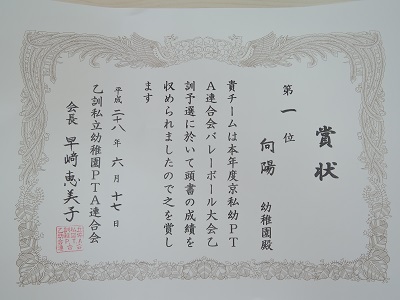 賞状
第一位
向陽 幼稚園殿
貴チームは本年度京私幼PT
A連合会バレーボール大会乙
訓予選に於いて頭書の成績を
収められましたので之を賞し
ます
平成二十八年六月十七日
乙訓私立幼稚園PTA連合会
会長 早﨑恵美子